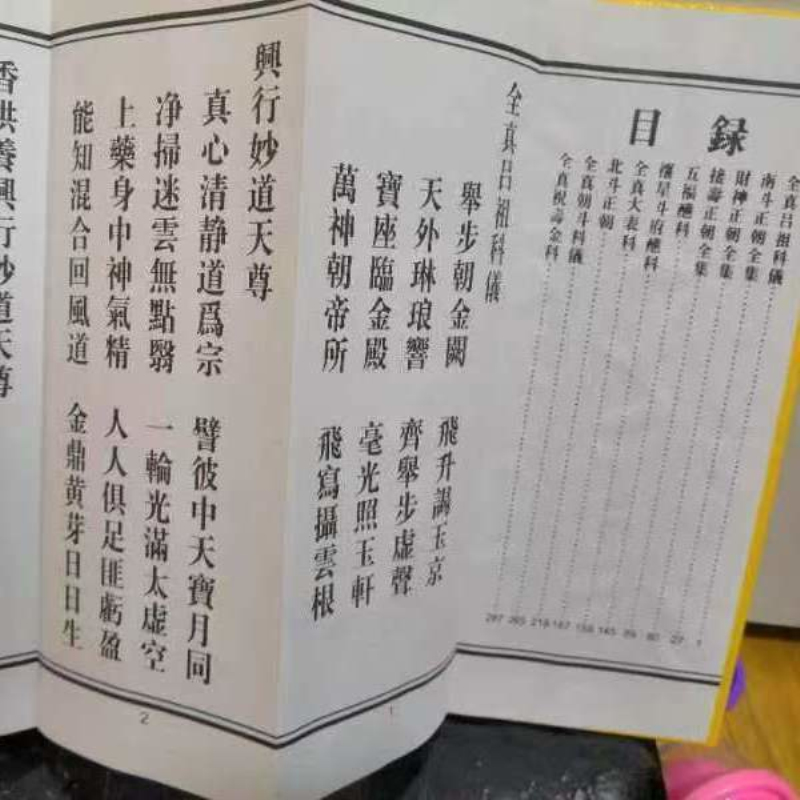 目録
全真吕祖科儀 1
南斗正朝全集 27
財神正朝全集 60
接壽正朝全集 89
五福醮科 145
禳星斗府醮科
全真大表科 187
北斗正朝 218
全真朝斗科儀 265
全真祝壽金科 287
全真吕祖科儀
舉步朝金闕 飛升謁玉京
天外琳琅響 齊舉步虛聲
寶座臨金殿 毫光照玉軒
萬神朝帝所 飛舄攝雲根
1
興行妙道天尊
真心清静道爲宗 譬彼中天寶月同
净掃迷雲無點翳 一輪光滿太虚空
上藥身中神氣精 人人俱足匪虧盈
能知混合回風道 金鼎黄芽日日生
2
香供養興行妙道天尊